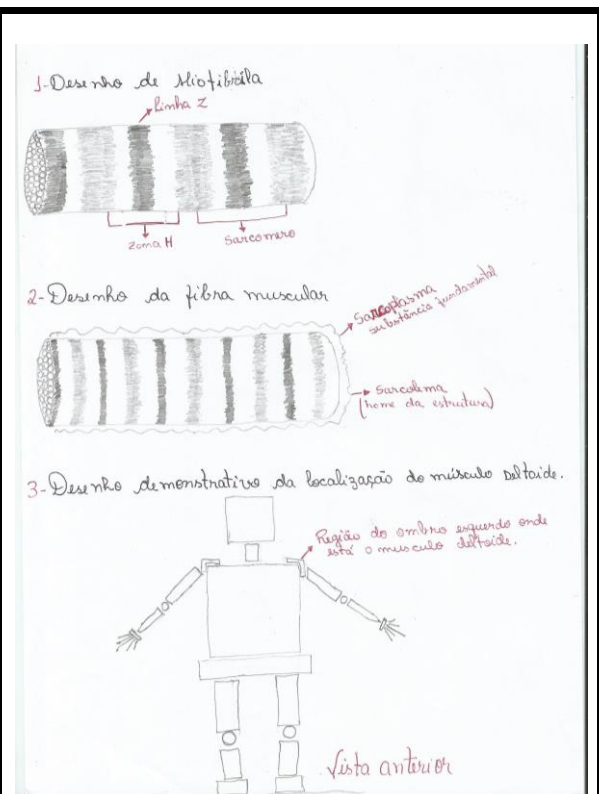 1-Desenho de Miofibrila
Linha Z
Zona H
Sarcomero
2-Desenho da fibra muscular
Sarcoplasma
substância fundamental
Sarcolema
(nome da estrutura)
3-Desenho demonstrativo da localização do músculo Deltoide.
Região do ombro esquerdo onde
está o musculo deltoide.
Vista anterior